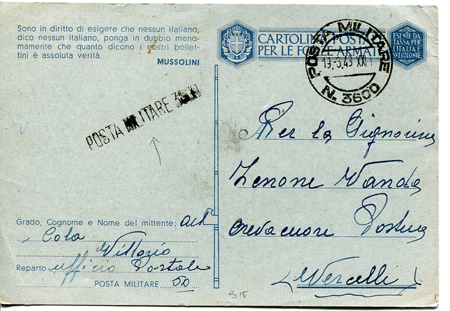 Sono in diritto di esigere che nessun italiano,
dico nessun italiano, ponga in dubbio meno-
mamente che quanto dicono i nostri bollet-
tini è assoluta verità.
MUSSOLINI
CARTOLINA POSTALE
PER LE FORZE ARMATE
ESENTE DA
TASSA PER
L'ITALIA
POSTA MILITARE
19.6.43 XXI
N. 3600
POSTA MILITARE
Per la Signorina
Zenone Wanda
Crevacuore
Vercelli
Grado, Cognome e Nome del mittente:
Cola Vittorio
Reparto ufficio Postale
POSTA MILITARE 50